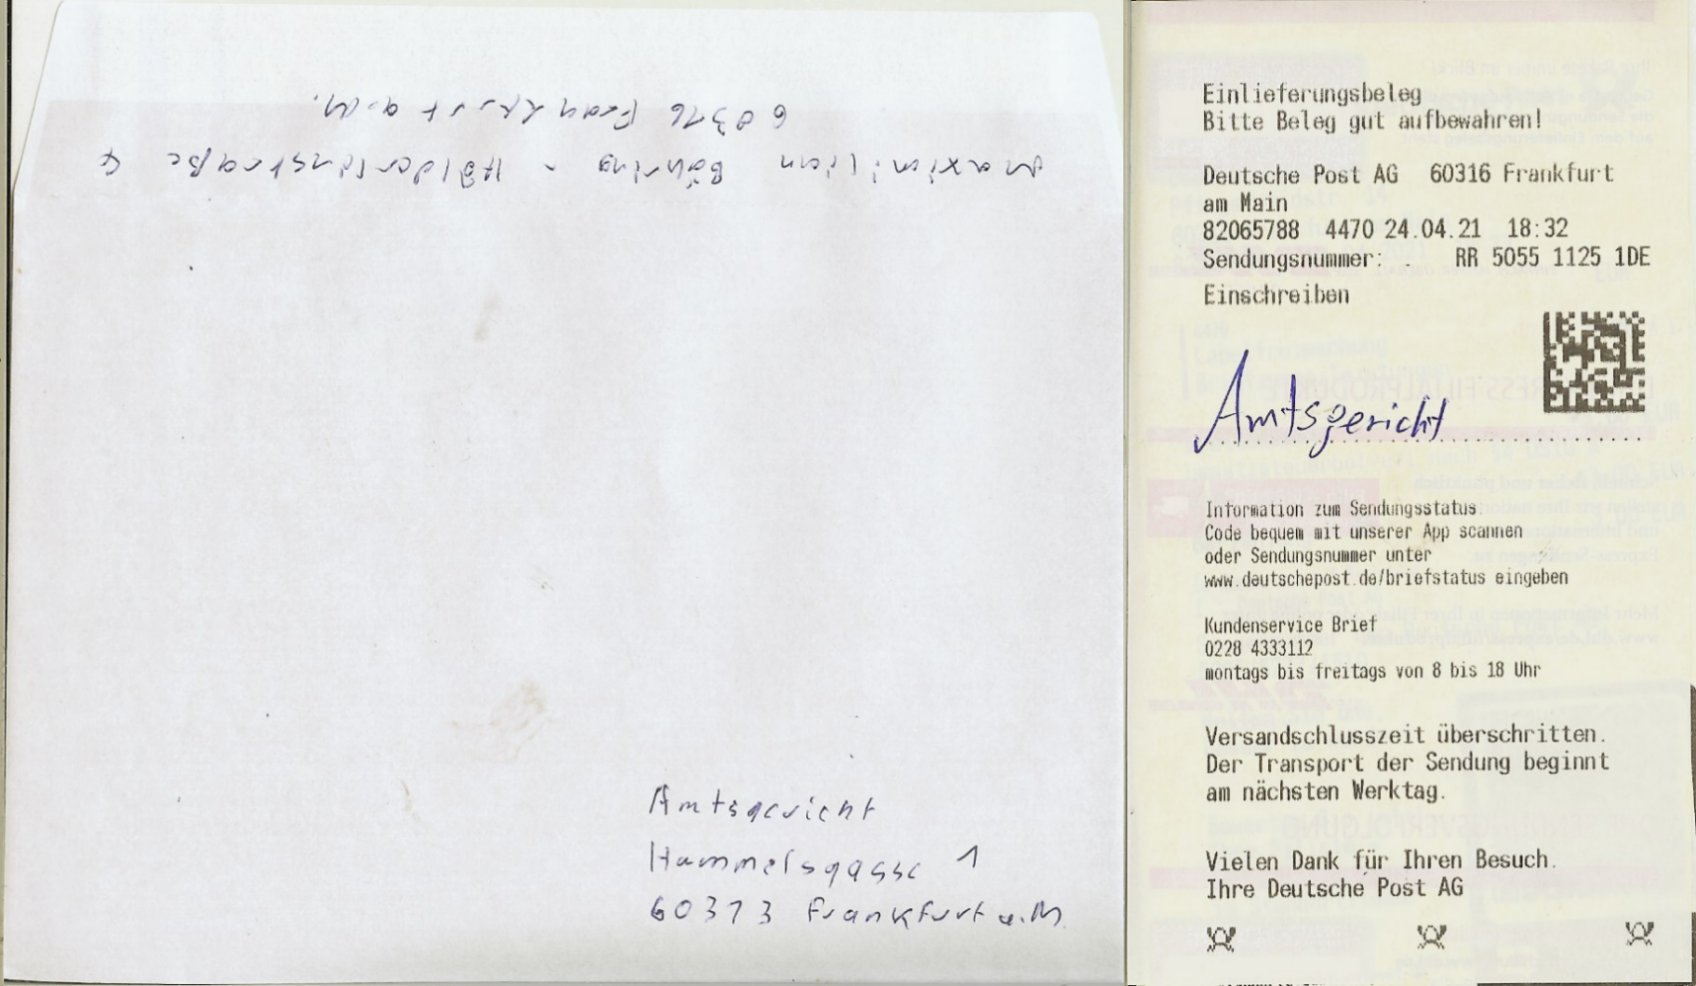 Maximilian Bähring - Hölderlinstraße 4
60316 Frankfurt a.M.
Amtsgericht
Hammelsgasse 1
60313 Frankfurt a.M.
Einlieferungsbeleg
Bitte Beleg gut aufbewahren!
Deutsche Post AG 60316 Frankfurt
am Main
82065788 4470 24.04.21 18:32
Sendungsnummer: RR 5055 1125 1DE
Einschreiben
Amtsgericht
Information zum Sendungsstatus
Code bequem mit unserer App scannen
oder Sendungsnummer unter
www.deutschepost.de/briefstatus eingeben
Kundenservice Brief
0228 4333112
montags bis freitags von 8 bis 18 Uhr
Versandschlusszeit überschritten.
Der Transport der Sendung beginnt
am nächsten Werktag.
Vielen Dank für Ihren Besuch.
Ihre Deutsche Post AG